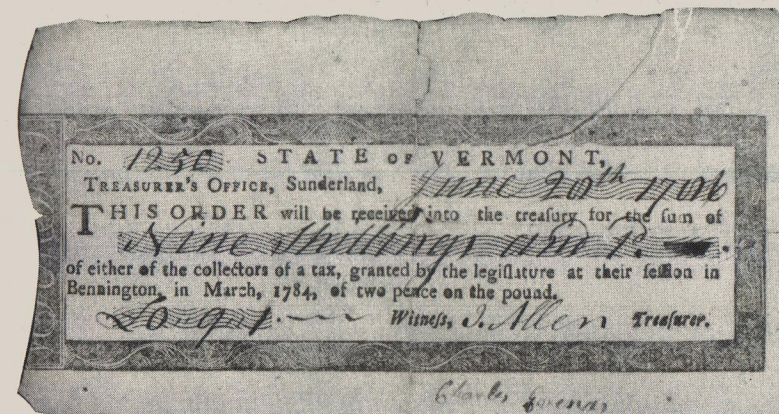 No. 1250. STATE OF VERMONT,
TREASURER'S OFFICE, Sunderland, June 20th 1786
THIS ORDER will be received into the treasury for the sum of
Nine shillings and 1d.
of either of the collectors of a tax, granted by the legiſlature at their ſeſſion in
Bennington, in March, 1784, of two pence on the pound.
£0. 9. 1. Witneſs, I. Allen Treaſurer.
Charles